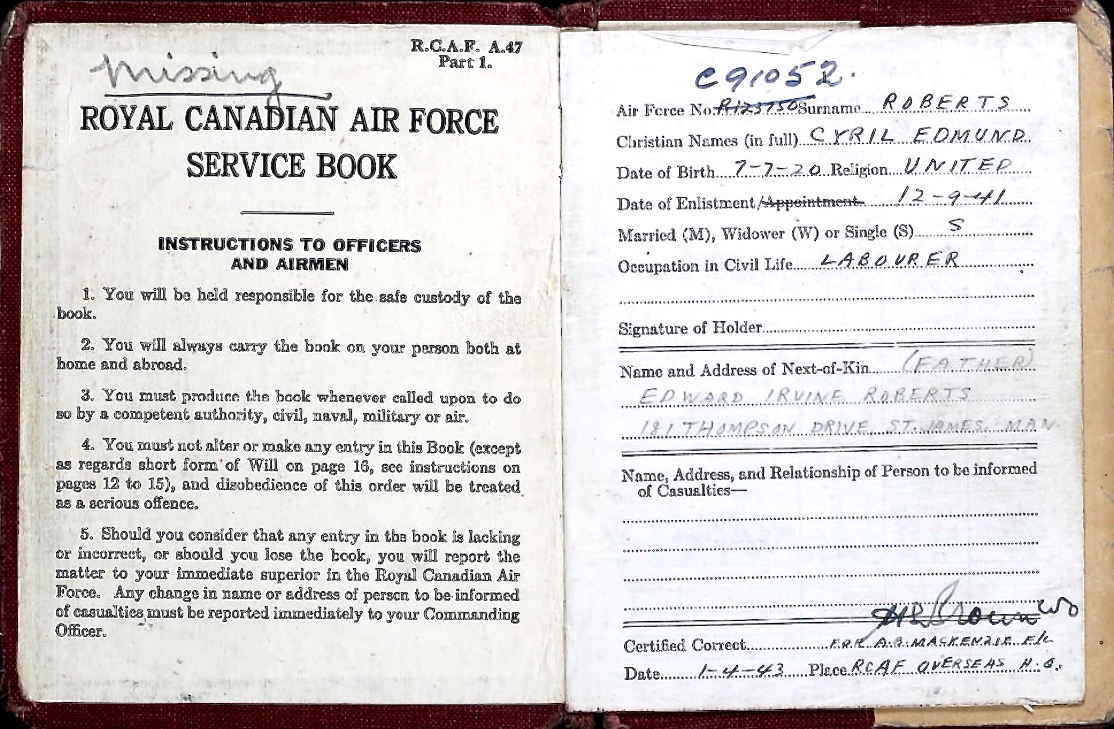 R.C.A.F. A.47
Part 1.
Missing
ROYAL CANADIAN AIR FORCE
SERVICE BOOK
INSTRUCTIONS TO OFFICERS
AND AIRMEN
1. You will be held responsible for the safe custody of the
book.
2. You will always carry the book on your person both at
home and abroad.
3. You must produce the book whenever called upon to do
so by a competent authority, civil, naval, military or air.
4. You must not alter or make any entry in this Book (except
as regards short form of Will on page 16, see instructions on
pages 12 to 15), and disobedience of this order will be treated
as a serious offence.
5. Should you consider that any entry in the book is lacking
or incorrect, or should you lose the book, you will report the
matter to your immediate superior in the Royal Canadian Air
Force. Any change in name or address of person to be informed
of casualties must be reported immediately to your Commanding
Officer.
C91052.
Air Force No. R123750 Surname ROBERTS
Christian Names (in full) CYRIL EDMUND
Date of Birth 7-7-20 Religion UNITED
Date of Enlistment/Appointment 12-9-41
Married (M), Widower (W) or Single (S) S
Occupation in Civil Life LABOURER
Signature of Holder
Name and Address of Next-of-Kin (FATHER)
EDWARD IRVINE ROBERTS
181 THOMPSON DRIVE ST. JAMES. MAN.
Name, Address, and Relationship of Person to be informed
of Casualties—
Brown
Certified Correct FOR A.B. MACKENZIE F/L
Date 1-4-43 Place RCAF OVERSEAS H.Q.